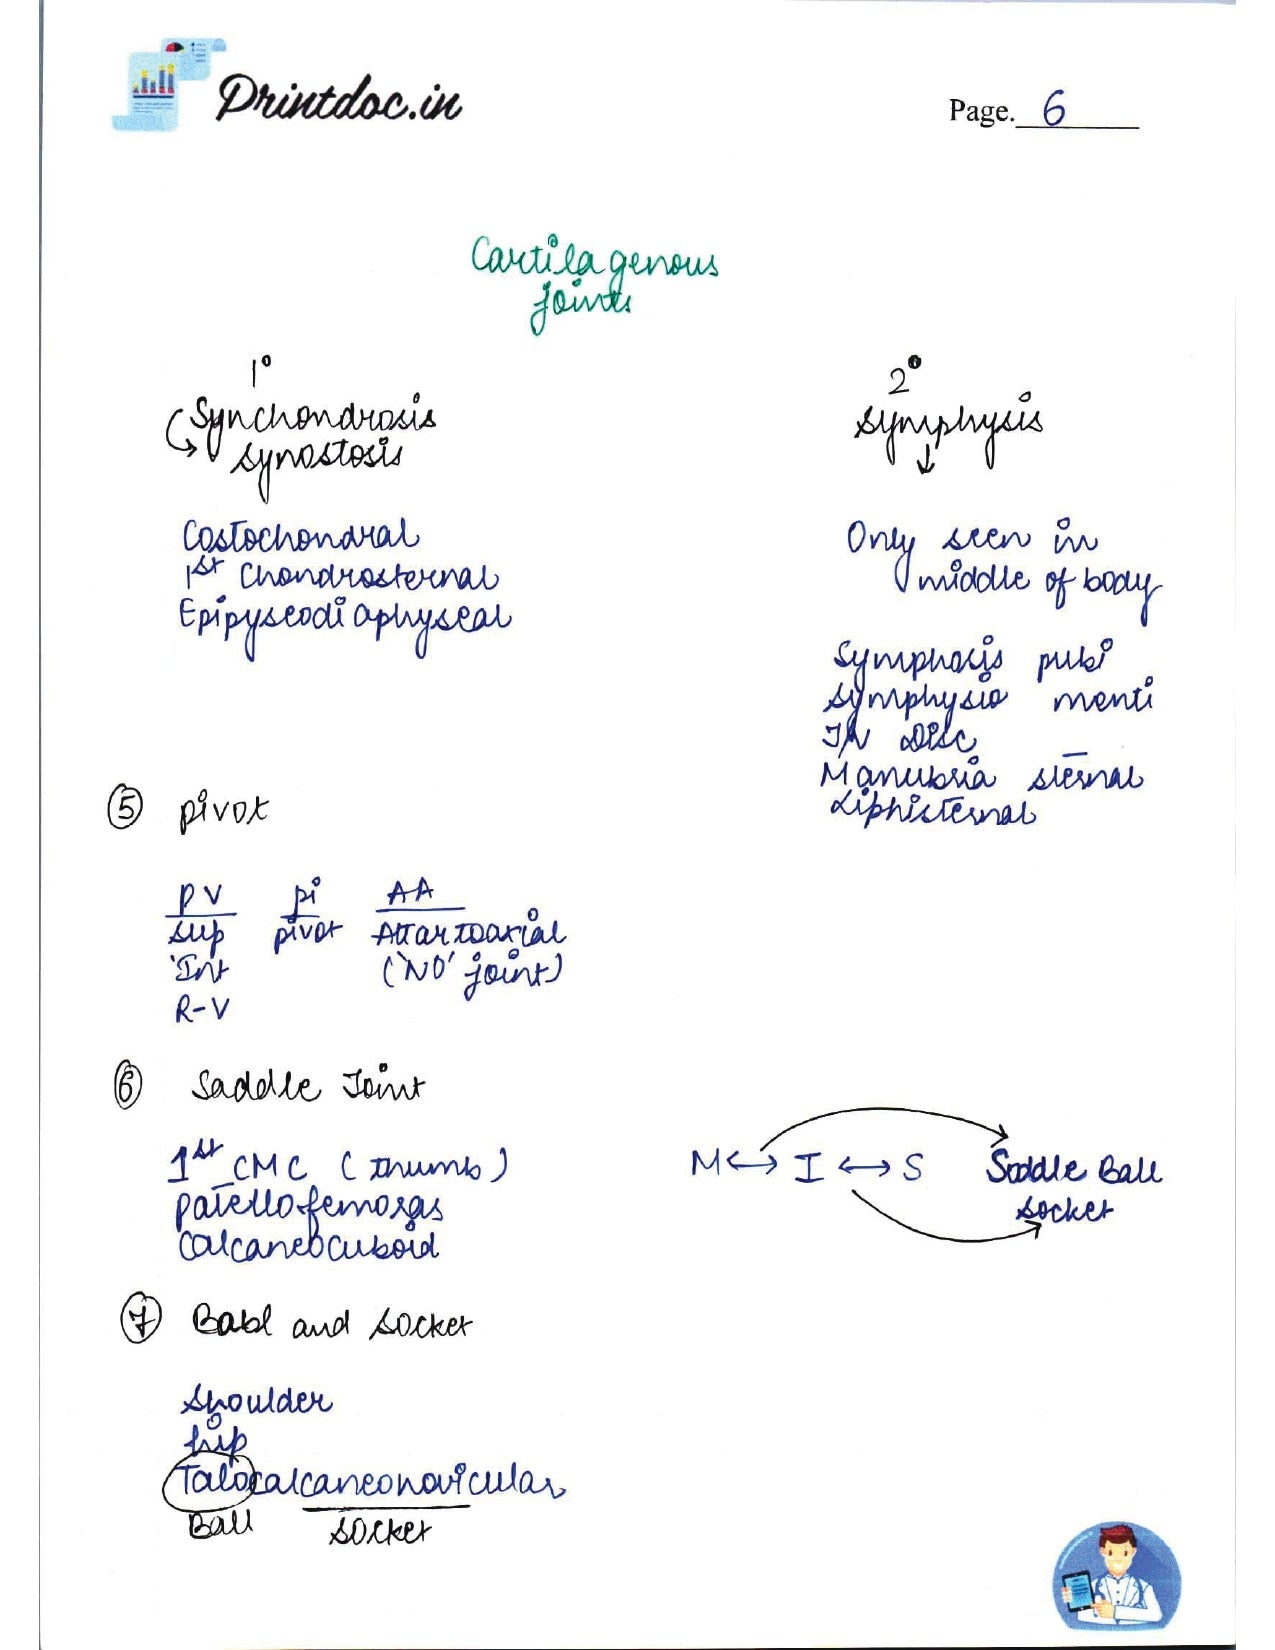 Printdoc.in
Page. 6
Cartilagenous
joints
1°
Synchondrosis
synostosis
Costochondral
1st Chondrosternal
Epipyseodiaphyseal
2°
symphysis
Only seen in
middle of body
Symphosis pubi
symphysis menti
IV Disc
Manubria sternal
Xiphisternal
⑤ pivot
PV pi AA
sup pivot Atlantoaxial
Int ('NO' joint)
R-V
⑥ Saddle Joint
1st CMC (thumb)
patellofemoras
Calcaneocuboid
M↔I↔S Saddle Ball
socket
⑦ Ball and socket
shoulder
hip
Talocalcaneonavicular
Ball socket